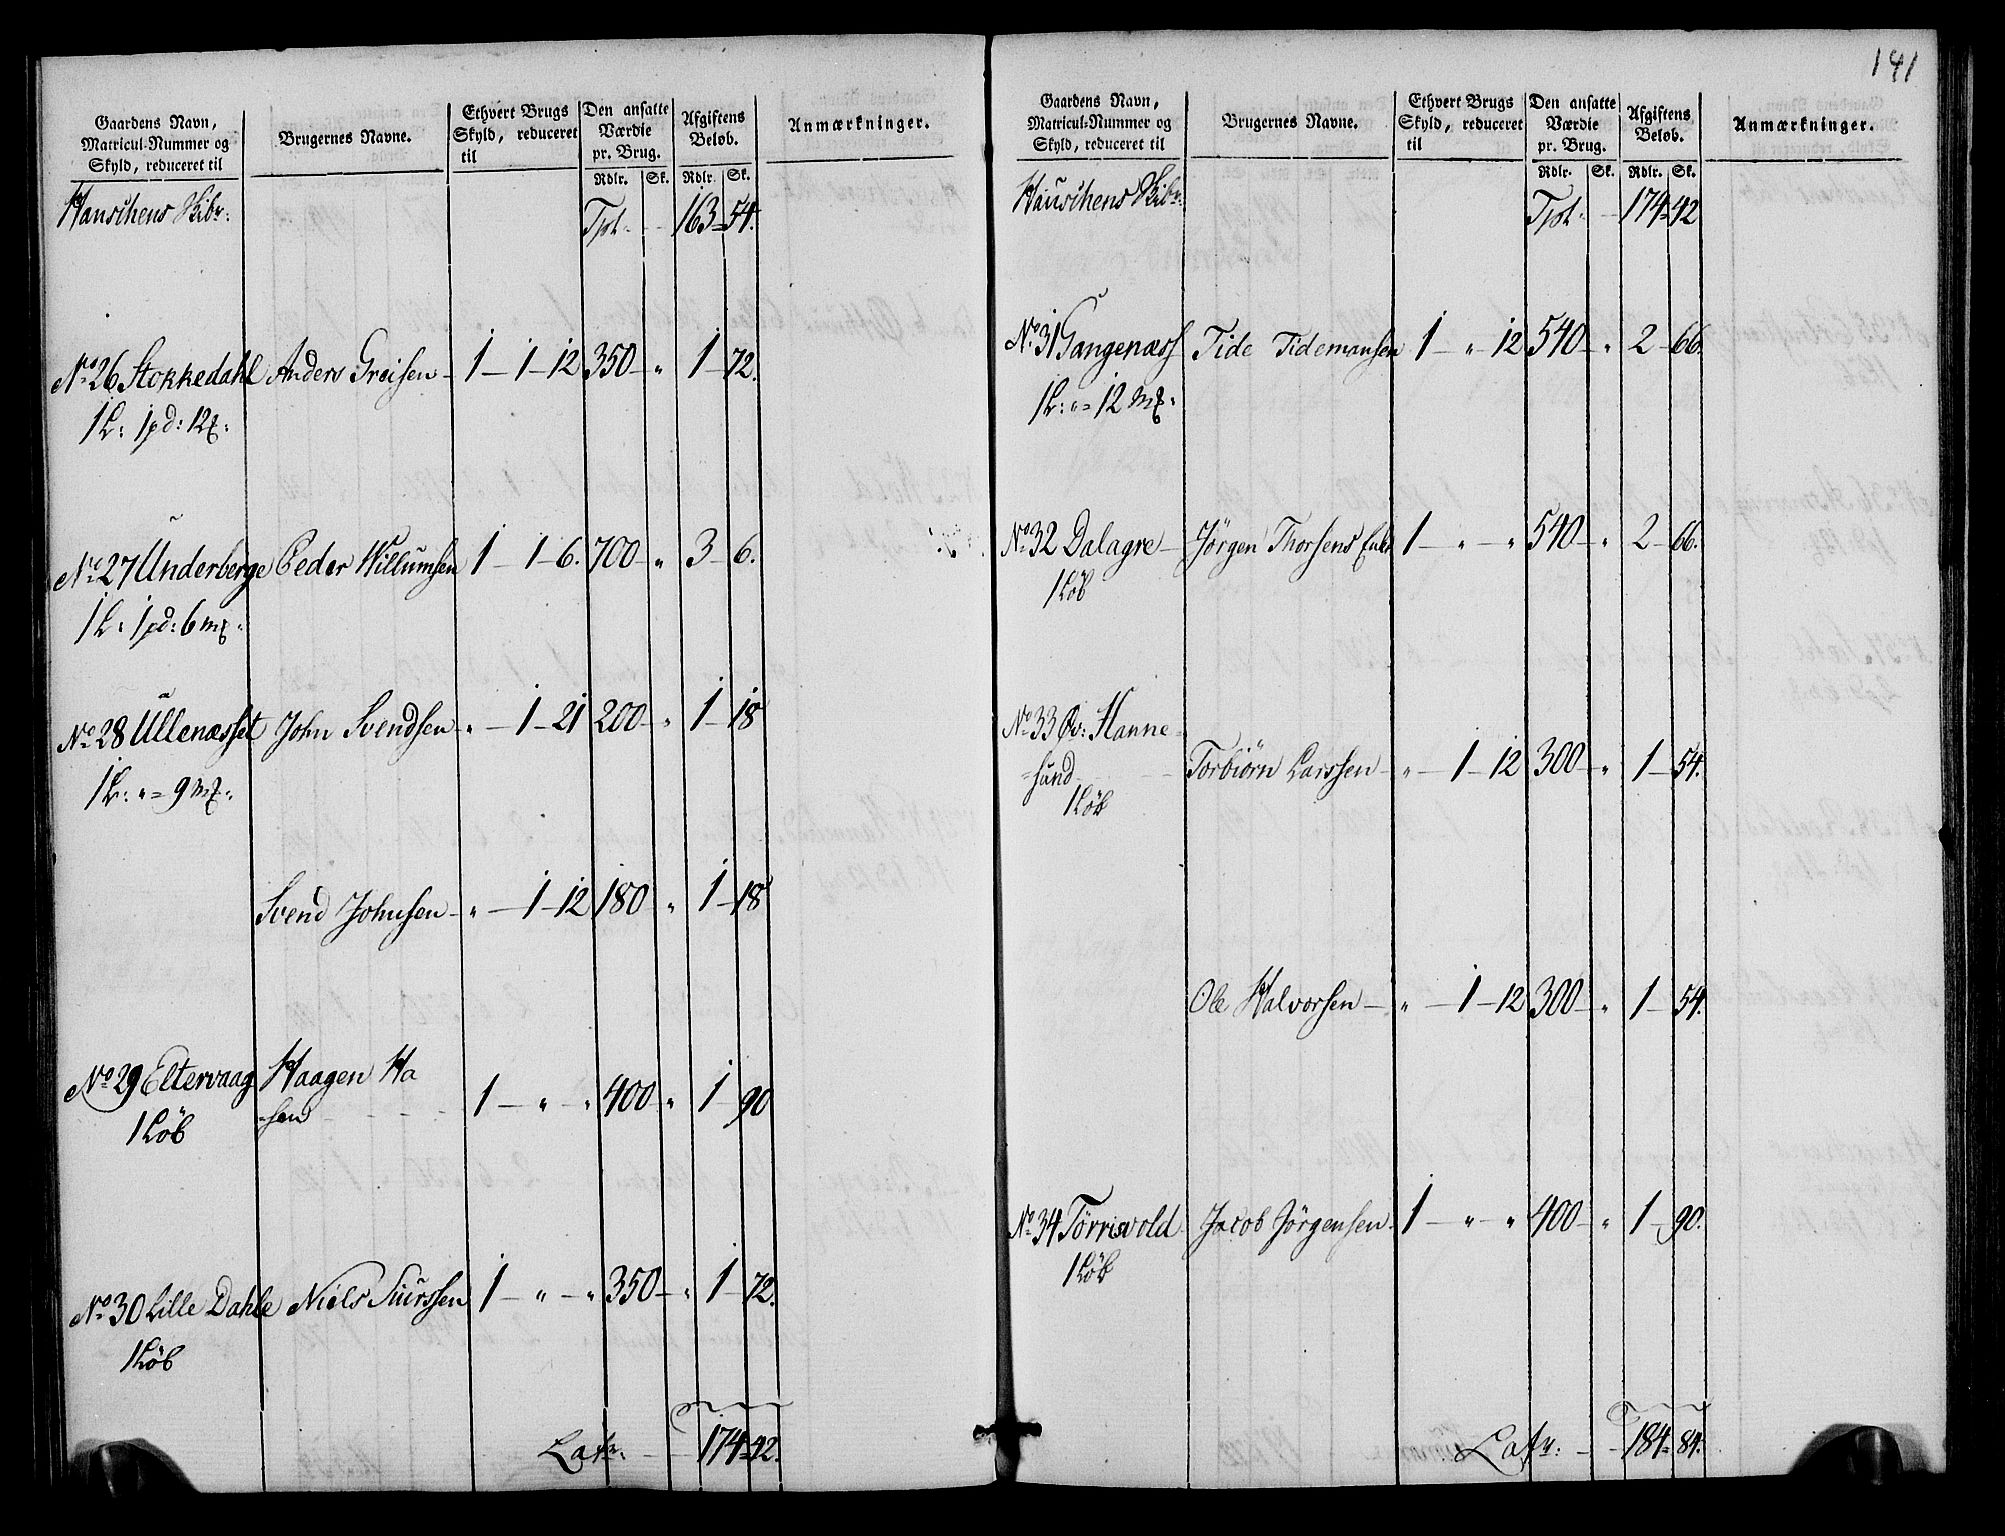 Gaardens Navn, Matricul-Nummer og Skyld, reduceret til | Brugernes Navne. | Ethvert Brugs Skyld, reduceret til | Den ansatte Værdie pr. Brug. | Afgiftens Beløb. | Anmærkninger.
Rdlr. | Sk. | Rdlr. | Sk.
Hauschens Skibr: Tpt. 163 = 54.
No 26 Stokkedahl Anders Greisen 1 – 1 – 12 350 " 1 – 72.
1 L: 1 pd: 12
No 27 Underberge Peder Willumsen 1 1 – 6. 700 " 3 – 6.
1 L: 1 pd: 6 mk
No 28 Ullenæsset John Svendsen " – 1 – 21 200 " 1 – 18
1 L: " = 9 mk
Svend Johnsen " – 1 – 12 180 " 1 – 18
No 29 Eltervaag Haagen Ha
=sen 1 – " " 400 " 1 – 90
1 Løb
No 30 Lille Dahle Niels Siurssen 1 – " – " 350 " 1 – 72.
1 Løb
Latr: 174 = 42.
141
Gaardens Navn, Matricul-Nummer og Skyld, reduceret til | Brugernes Navne. | Ethvert Brugs Skyld, reduceret til | Den ansatte Værdie pr. Brug. | Afgiftens Beløb. | Anmærkninger.
Rdlr. | Sk. | Rdlr. | Sk.
Hauschens Skibr: Tpt. 174 = 42
No 31 Gangenæss Tide Tidemansen 1 – " 12 540 " 2 – 66.
1 L: " = 12 mk
No 32 Dalagre Jørgen Thorsens Enke 1 – " – " 540 " 2 – 66.
1 Løb
No 33 Øv: Hanne=
=sund Torbiørn Larssen " – 1 – 12 300 " 1 – 54.
1 Løb
Ole Halvorsen " – 1 – 12 300 " 1 – 54.
No 34 Tørrisvold Jacob Jørgensen 1 – " – " 400 " 1 – 90.
1 Løb
Latr: 184 = 84.